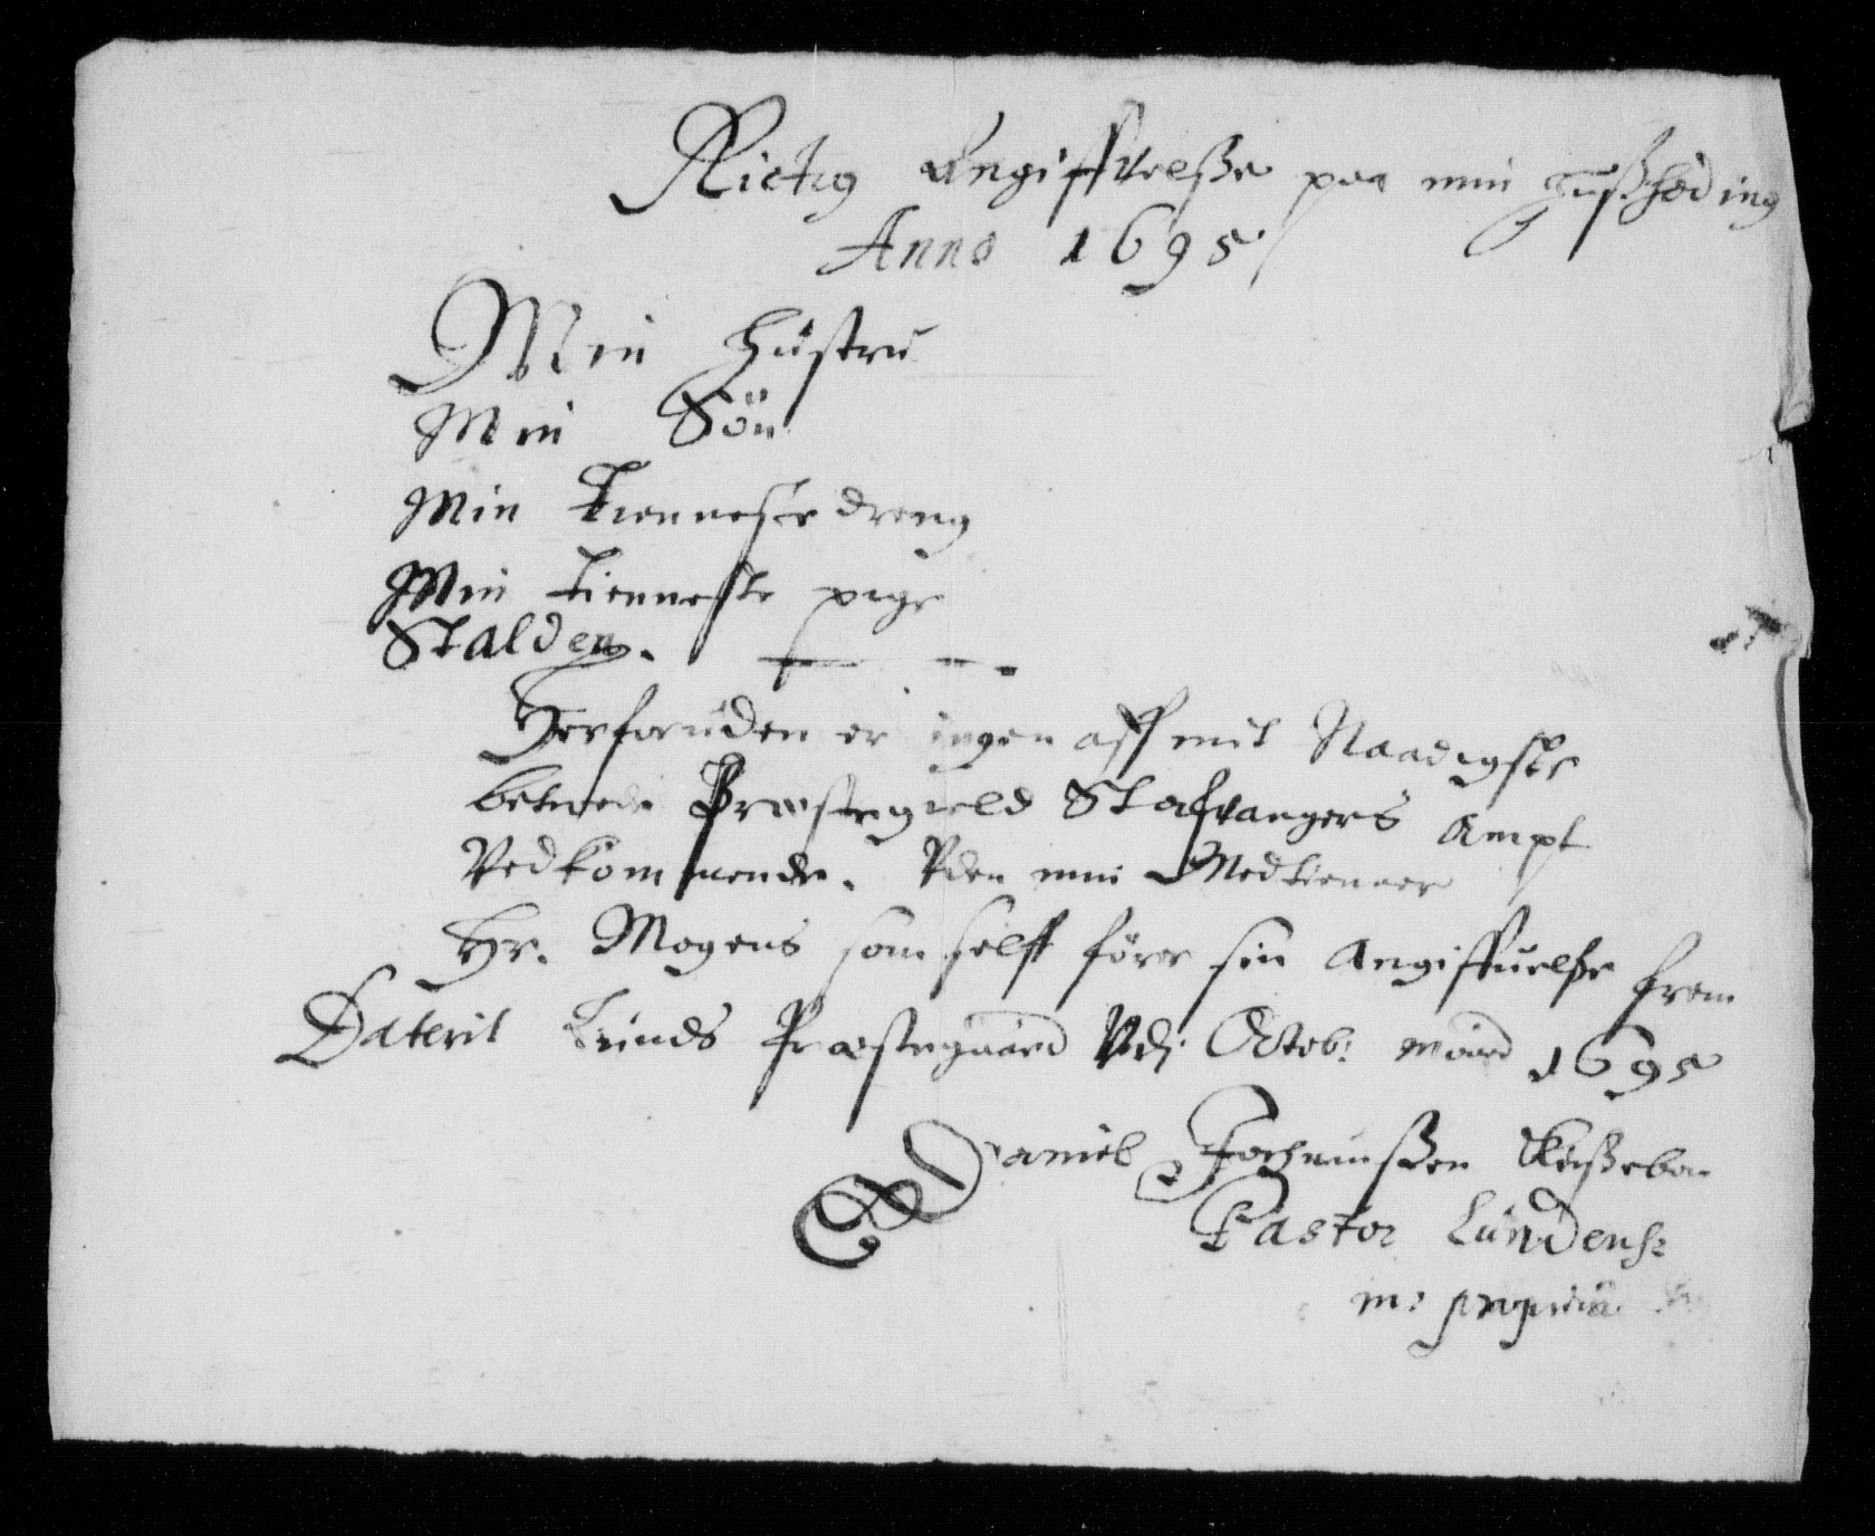 Rictig Angiffvelsße paa min Hußholding
Anno 1695
Min Hüstru
Min Sön
Min Tienneste dreng
Min tienneste pige
Stalden.
Herforüden er ingen aff mit Naadigste
betroede Præstegield Stafvangers Ampt
Vedkommende. Vden min Medtienner
Hr. Mogens som self förer sin Angiffuelße frem
Daterit Lünds Præstegaard Octob: 1695
Daniel
Pastor Lündens:
m: propria